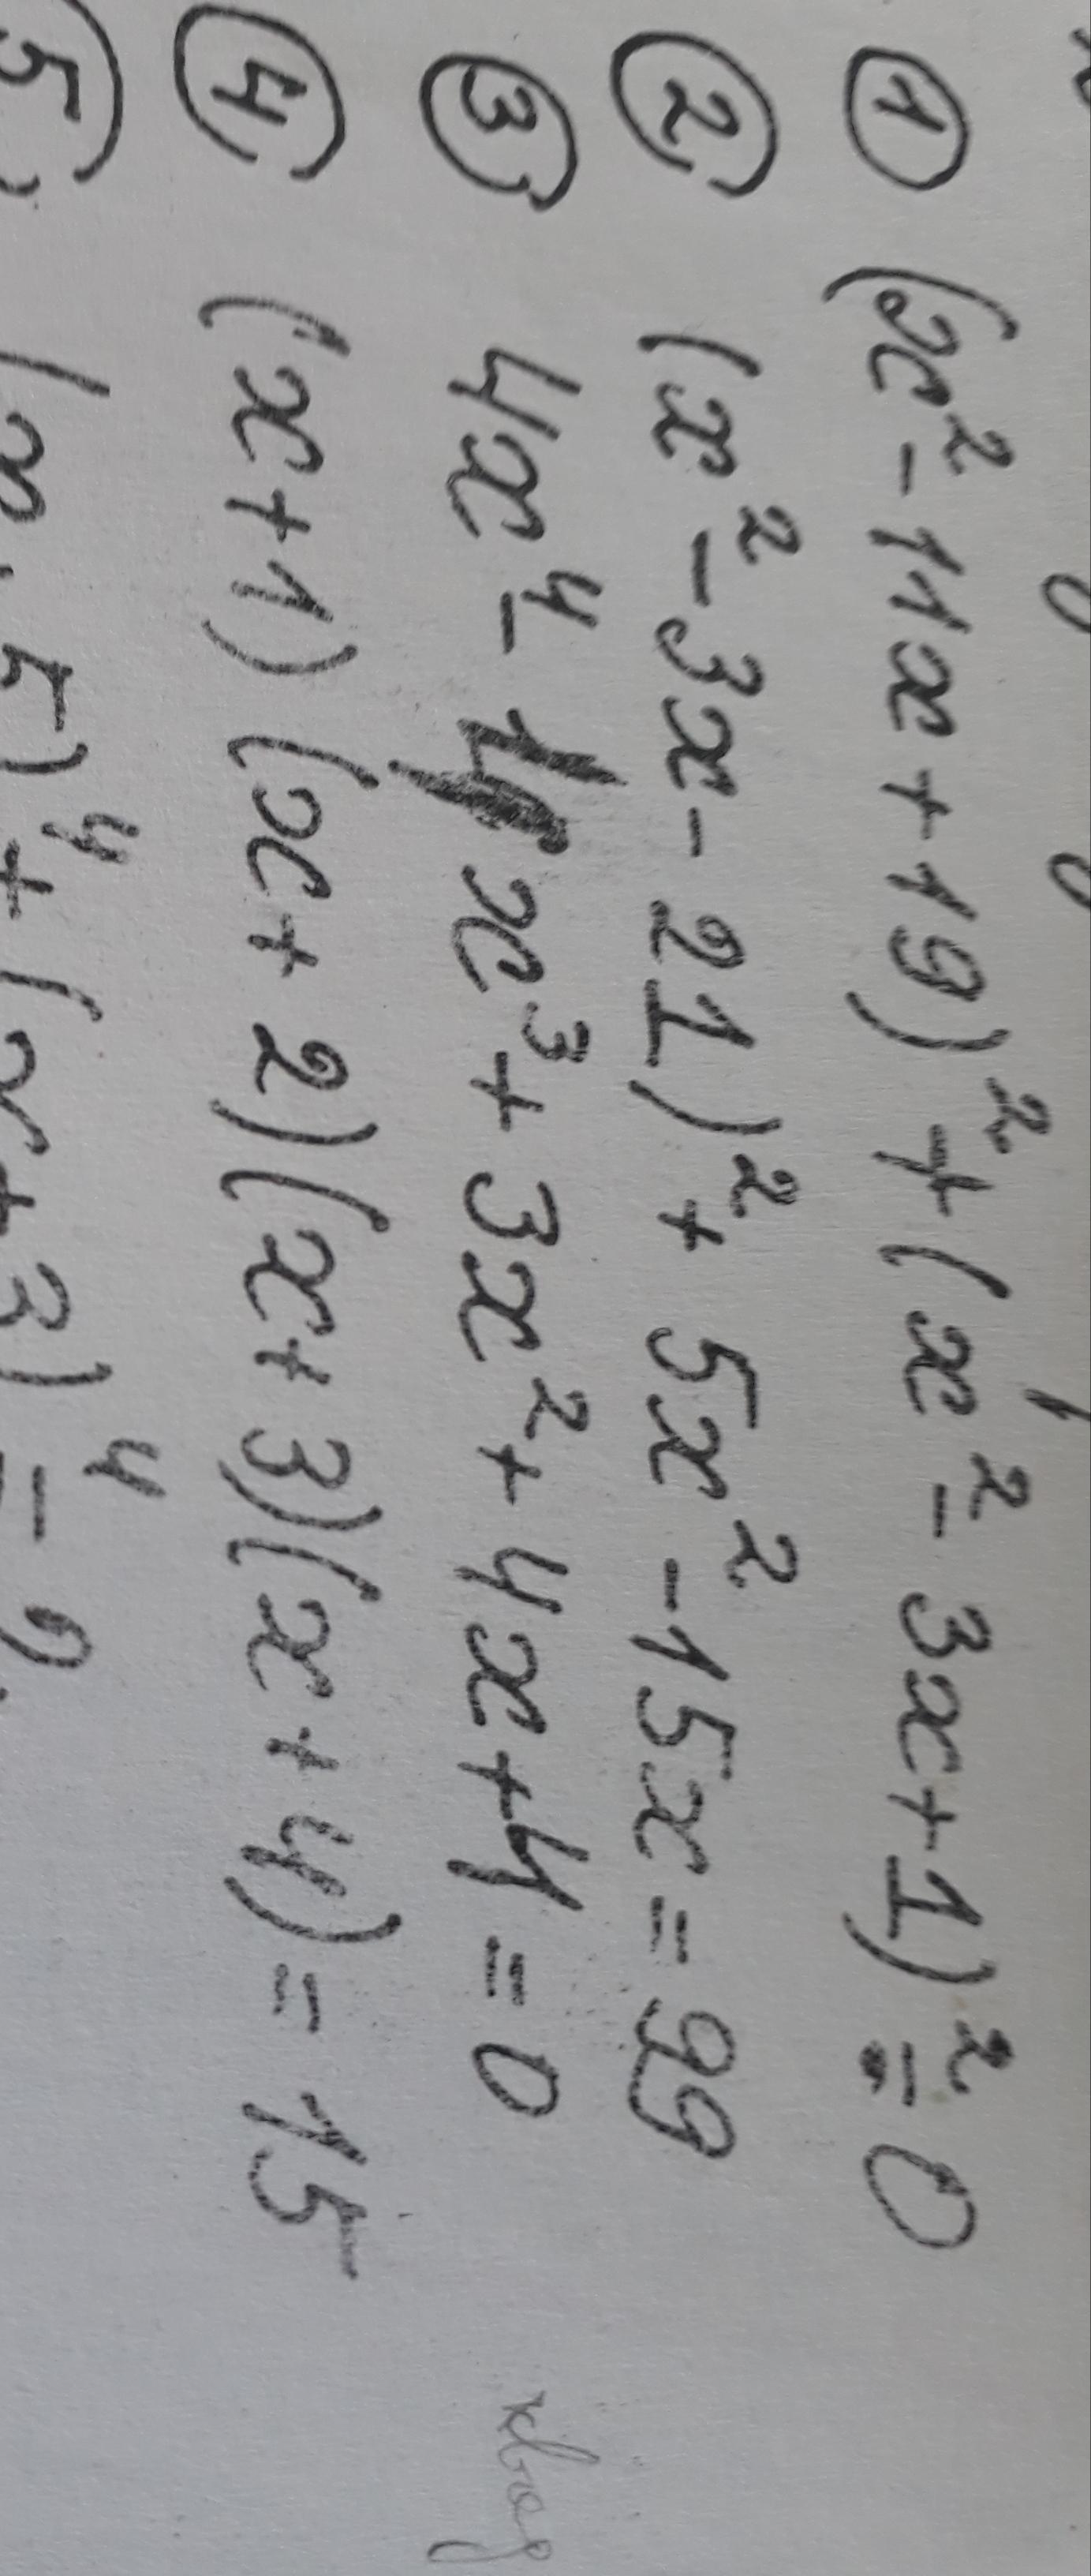 ① (x² - 11x + 19)² + (x² - 3x + 1)² = 0
② (x² - 3x - 21)² + 5x² - 15x = 99
③ 4x⁴ - x³ + 3x² + 4x + 4 = 0
④ (x + 1)(x + 2)(x + 3)(x + 4) = 15